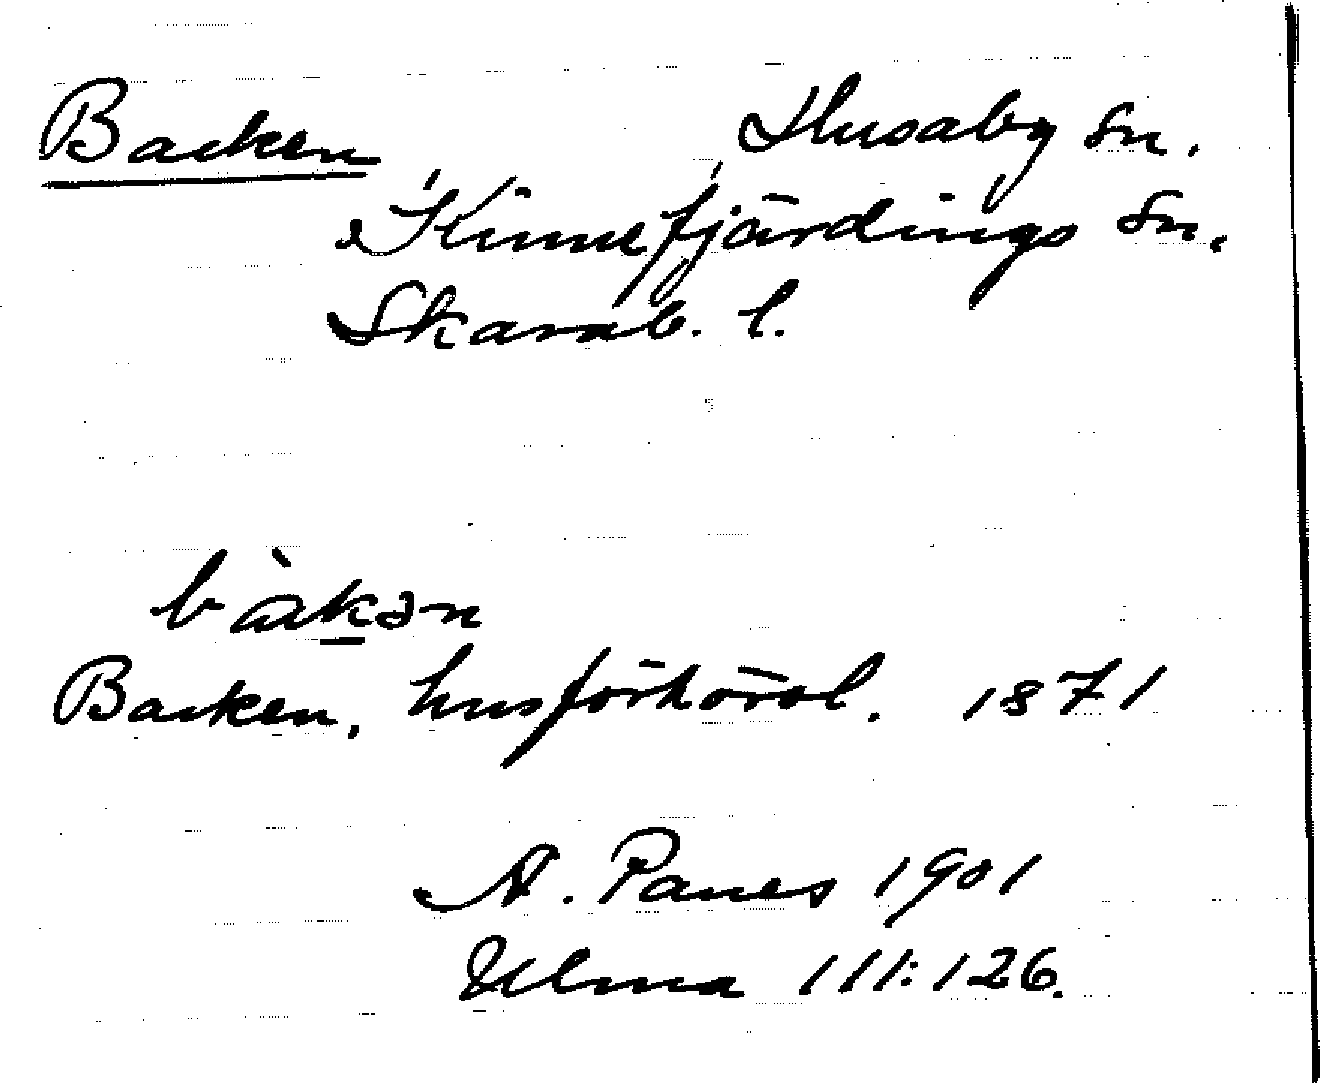 Backen Husaby Sn.
Kinnefjärdings Sn.
Skarab. l.
bàkən
Backen, husförhörsl. 1871
A. Panes 1901
Ulma 111:126.